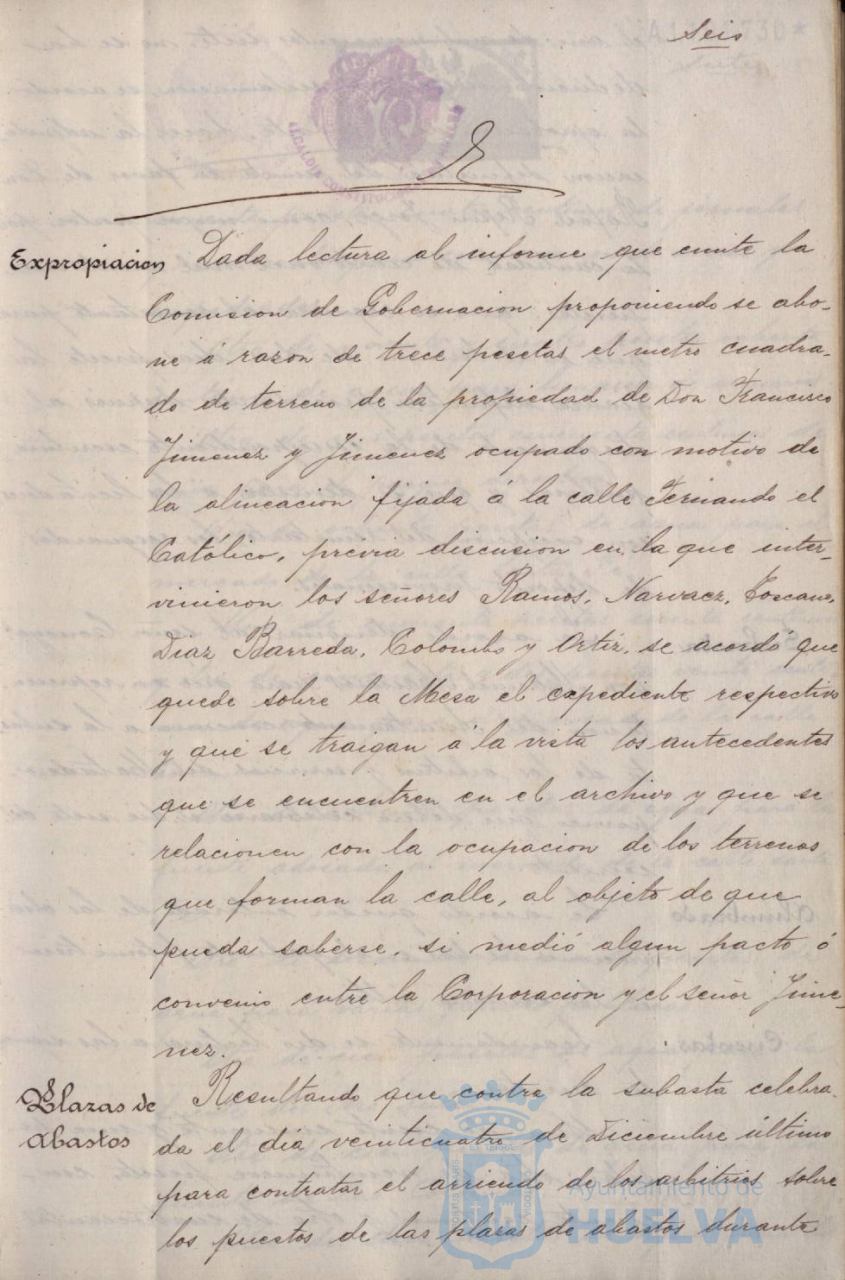 Seis
Expropiacion
Dada lectura al informe que emite la
Comision de Gobernacion proponiendo se abo-
ne á razon de trece pesetas el metro cuadra-
do de terreno de la propiedad de Don Francisco
Jimenez y Jimenez ocupado con motivo de
la alineacion fijada á la calle Fernando el
Católico, prévia discusion en la que inter-
vinieron los señores Ramos, Narvaez, Toscano,
Diaz Barreda, Colombo y Ortiz, se acordó que
quede sobre la Mesa el expediente respectivo
y que se traigan á la vista los antecedentes
que se encuentren en el archivo y que se
relacionen con la ocupacion de los terrenos
que forman la calle, al objeto de que
pueda saberse, si medió algun pacto ó
convenio entre la Corporacion y el señor Jime-
nez.
Plazas de
Abastos
Resultando que contra la subasta celebra-
da el dia veinticuatro de Diciembre último
para contratar el arriendo de los arbitrios sobre
los puestos de las plazas de abastos durante
Ayuntamiento de
HUELVA